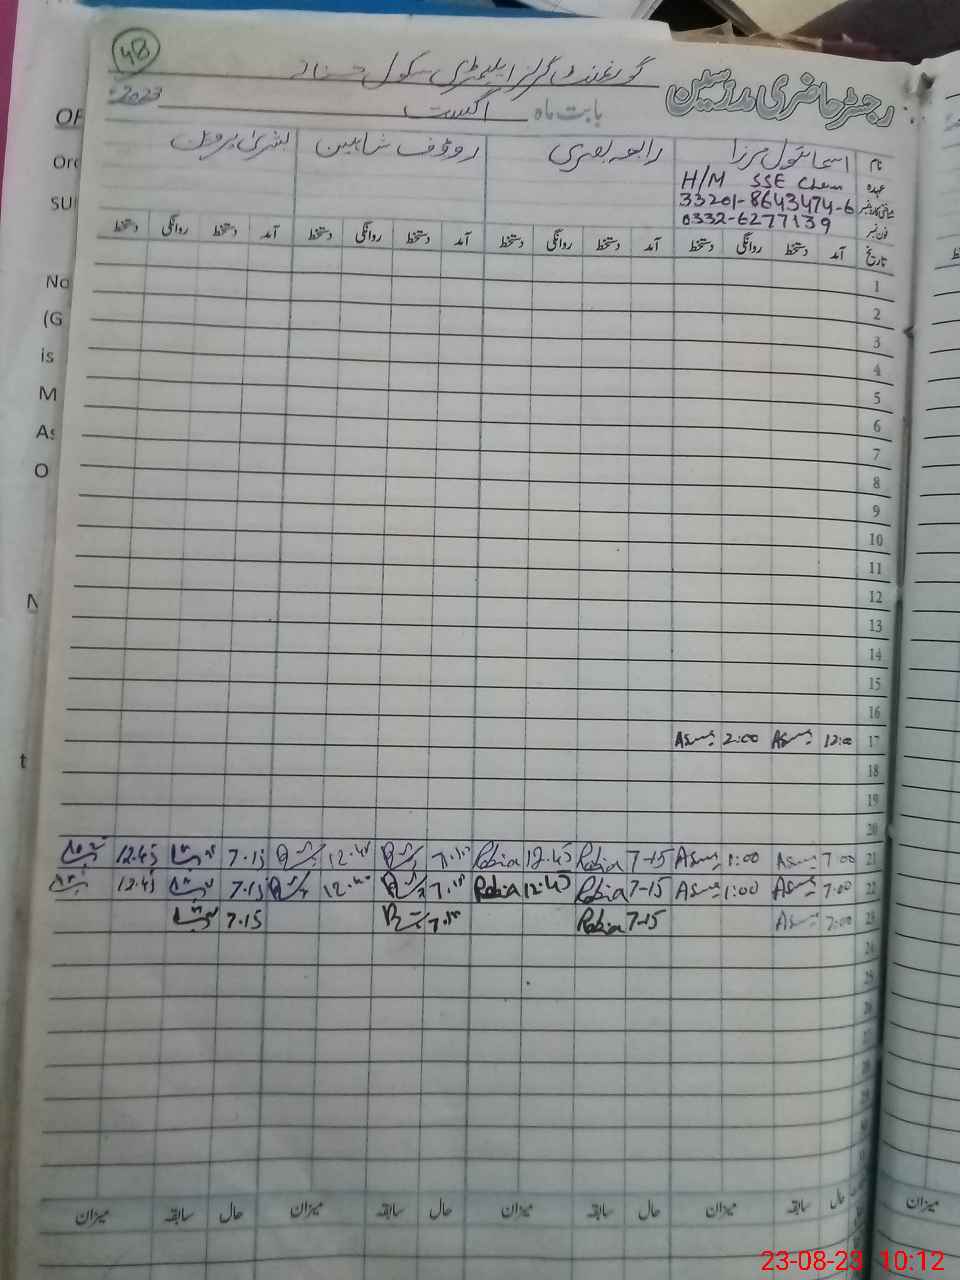 48
گورنمنٹ گرلز ایلیمنٹری سکول
رجسٹر حاضری مدرسین
بابت ماہ اگست 2023ء
نام اسما بتول مرزا رابعہ بصری روؤف شاہین بشریٰ پروین
عہدہ H/M SSE Chem
شناختی کارڈ نمبر 33201-8643474-6
فون نمبر 0332-6277139
تاریخ آمد دستخط روانگی دستخط آمد دستخط روانگی دستخط آمد دستخط روانگی دستخط آمد دستخط روانگی دستخط
1
2
3
4
5
6
7
8
9
10
11
12
13
14
15
16
17 12:00 2:00
18
19
20
21 7:00 1:00 7-15 Rabia 12.45 Rabia 7.15 12.45 7.15 12.45
22 7:00 1:00 7-15 Rabia 12.45 Rabia 7.15 12.45 7.15 12.45
23 7:00 7-15 Rabia 7.15 7.15
24
25
26
27
28
29
حال سابقہ میزان حال سابقہ میزان حال سابقہ میزان حال سابقہ میزان
میزان
OF
Ord
SU
No
(G
is
M
As
O
N
t
23-08-23 10:12